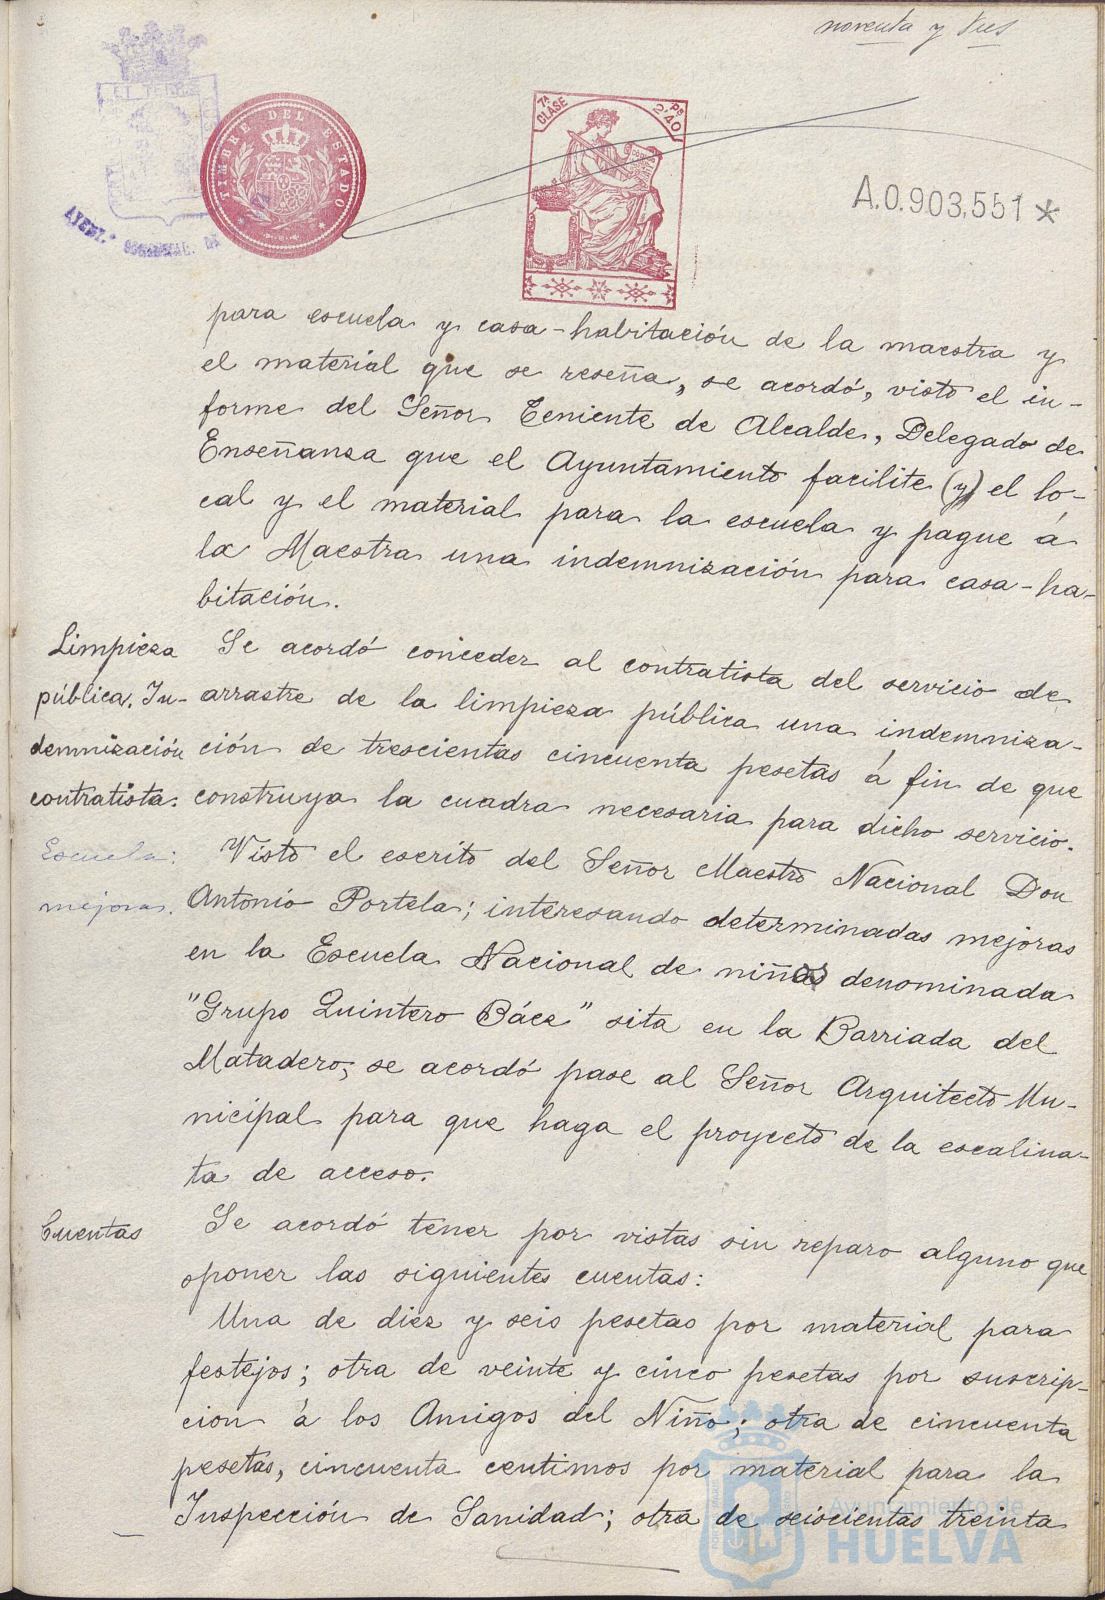 noventa y tres
TIMBRE DEL ESTADO
7ª CLASE
2'40
A.0.903,551 *
para escuela y casa-habitación de la maestra y
el material que se reseña, se acordó, visto el in-
forme del Señor Teniente de Alcalde, Delegado de
Enseñanza que el Ayuntamiento facilite (y) el lo-
cal y el material para la escuela y pague á
la Maestra una indemnización para casa-ha-
bitación.
Limpieza
pública. In-
demnización
contratista.
Se acordó conceder al contratista del servicio de
arrastre de la limpieza pública una indemniza-
ción de trescientas cincuenta pesetas á fin de que
construya la cuadra necesaria para dicho servicio.
Escuela:
mejoras.
Visto el escrito del Señor Maestro Nacional Don
Antonio Portela; interesando determinadas mejoras
en la Escuela Nacional de niños denominada
"Grupo Quintero Báez" sita en la Barriada del
Matadero, se acordó pase al Señor Arquitecto Mu-
nicipal para que haga el proyecto de la escalina-
ta de acceso.
Cuentas
Se acordó tener por vistas sin reparo alguno que
oponer las siguientes cuentas:
Una de diez y seis pesetas por material para
festejos; otra de veinte y cinco pesetas por suscrip-
cion á los Amigos del Niño; otra de cincuenta
pesetas, cincuenta centimos por material para la
Inspección de Sanidad; otra de seiscientas treinta
Ayuntamiento de
HUELVA